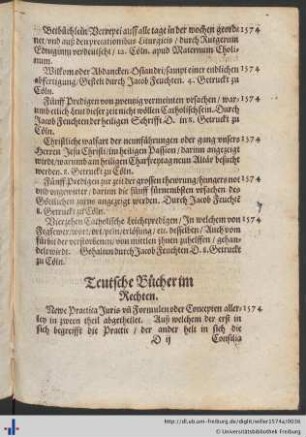 Betbüchlein/Verrept auff alle tage in der wochen geord= 1574
net/vnd auß den precationibus Liturgicis/durch Rutgerum
Edingium verdeutscht/12. Cöln. apud Maternum Choli-
num.
Wilkom oder Abdancken-Osiandri/sampt einer endlichen 1574
abfertigung/Gestelt durch Jacob Feuchten. 4. Getruckt zu
Cöln.
Fünff Predigen von zwentzig vermeinten vrsachen/war= 1574
umb etlich Leut dieser zeit nicht wöllen Catholisch sein. Durch
Jacob Feuchten der heiligen Schrifft D. in 8. Getruckt zu
Cöln.
Christliche walfart der neun führungen oder gäng vnsers 1574
Herren Jesu Christi/im heiligen Passion/darinn angezeigt
wirdt/warumb am heiligen Charfreytag neun Altär besucht
werden. 8. Getruckt zu Cöln.
Fünff Predigen zur zeit der grossen thewrung/hungers not 1574
vnd vngewitter/darinn die fünff fürnembsten vrsachen deß
Göttlichen zorns angezeigt werden. Durch Jacob Feuchtē
8. Getruckt zu Cöln.
Viertzehen Catholische Leichpredigen/In welchem von 1574
Fegfewer/ort/pein/erlösung/etc. desselben/Auch vom
der verstorbenen/von mitteln jhnen zuhelffen/gehan=
delt wirdt. Gehalten durch Jacob Feuchten D. 8. Getruckt
zu Cöln.
Teutsche Bücher im
Rechten.
Newe Practica Juris vñ Formulen oder Concepten aller= 1574
ley in zween theil abgetheilet. Auß welchem der erst in
sich begreifft die Practic/der ander helt in sich die
D ij Consilia
http://dl.ub.uni-freiburg.de/diglit/willer1574a/0038
Universitätsbibliothek Freiburg